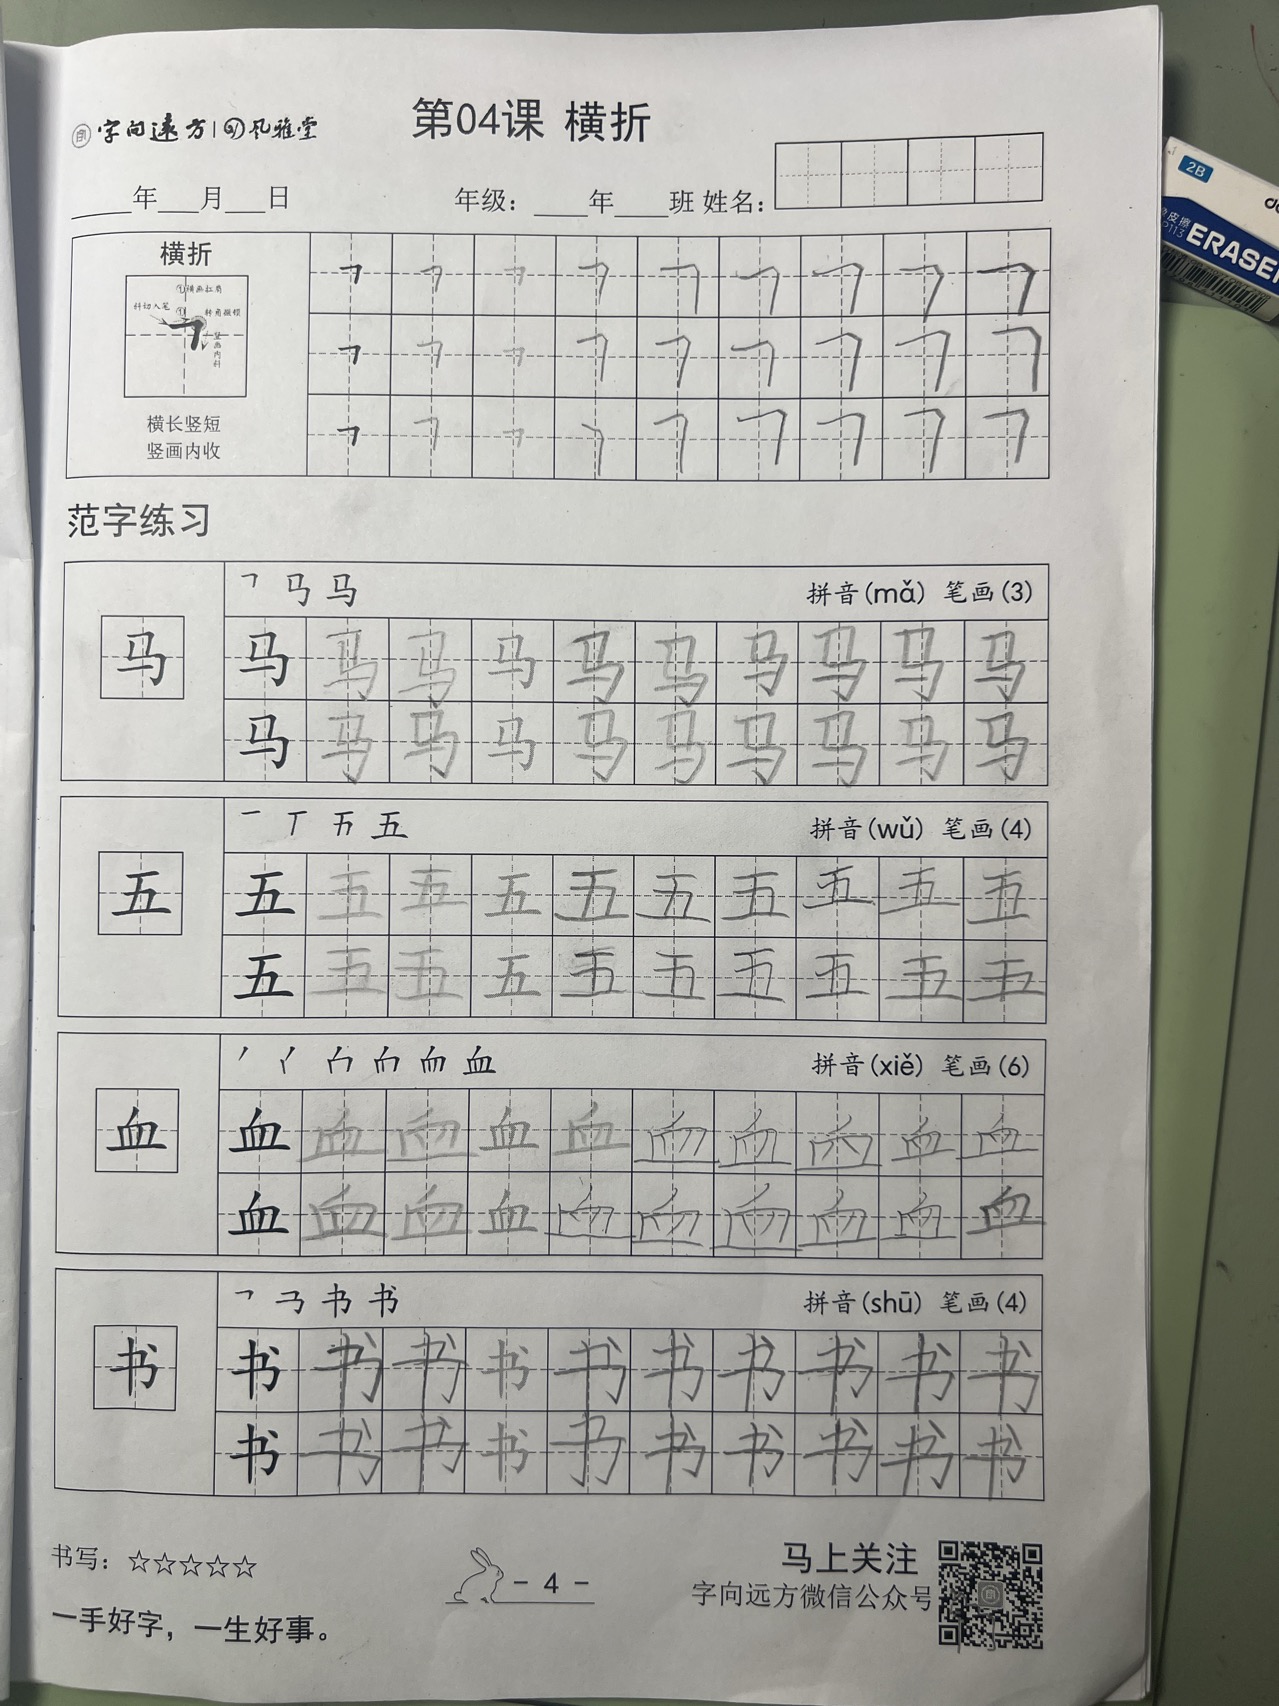 字向远方 风雅堂
第04课 横折
____年___月___日 年级：____年____班 姓名：
横折
①横画扛肩
斜切入笔 ① 转角顿锁
竖画内斜
横长竖短
竖画内收
范字练习
㇕ 马 马 拼音(mǎ) 笔画(3)
马 马 马 马 马 马 马 马 马 马 马
马 马 马 马 马 马 马 马 马 马
一 丅 五 拼音(wǔ) 笔画(4)
五 五 五 五 五 五 五 五 五 五 五
五 五 五 五 五 五 五 五 五 五
血 拼音(xiě) 笔画(6)
血 血 血 血 血 血 血 血 血 血 血
血 血 血 血 血 血 血 血 血 血
㇕ 书 书 拼音(shū) 笔画(4)
书 书 书 书 书 书 书 书 书 书 书
书 书 书 书 书 书 书 书 书 书
书写：☆☆☆☆☆
一手好字，一生好事。
- 4 -
马上关注
字向远方微信公众号
2B
ERASER